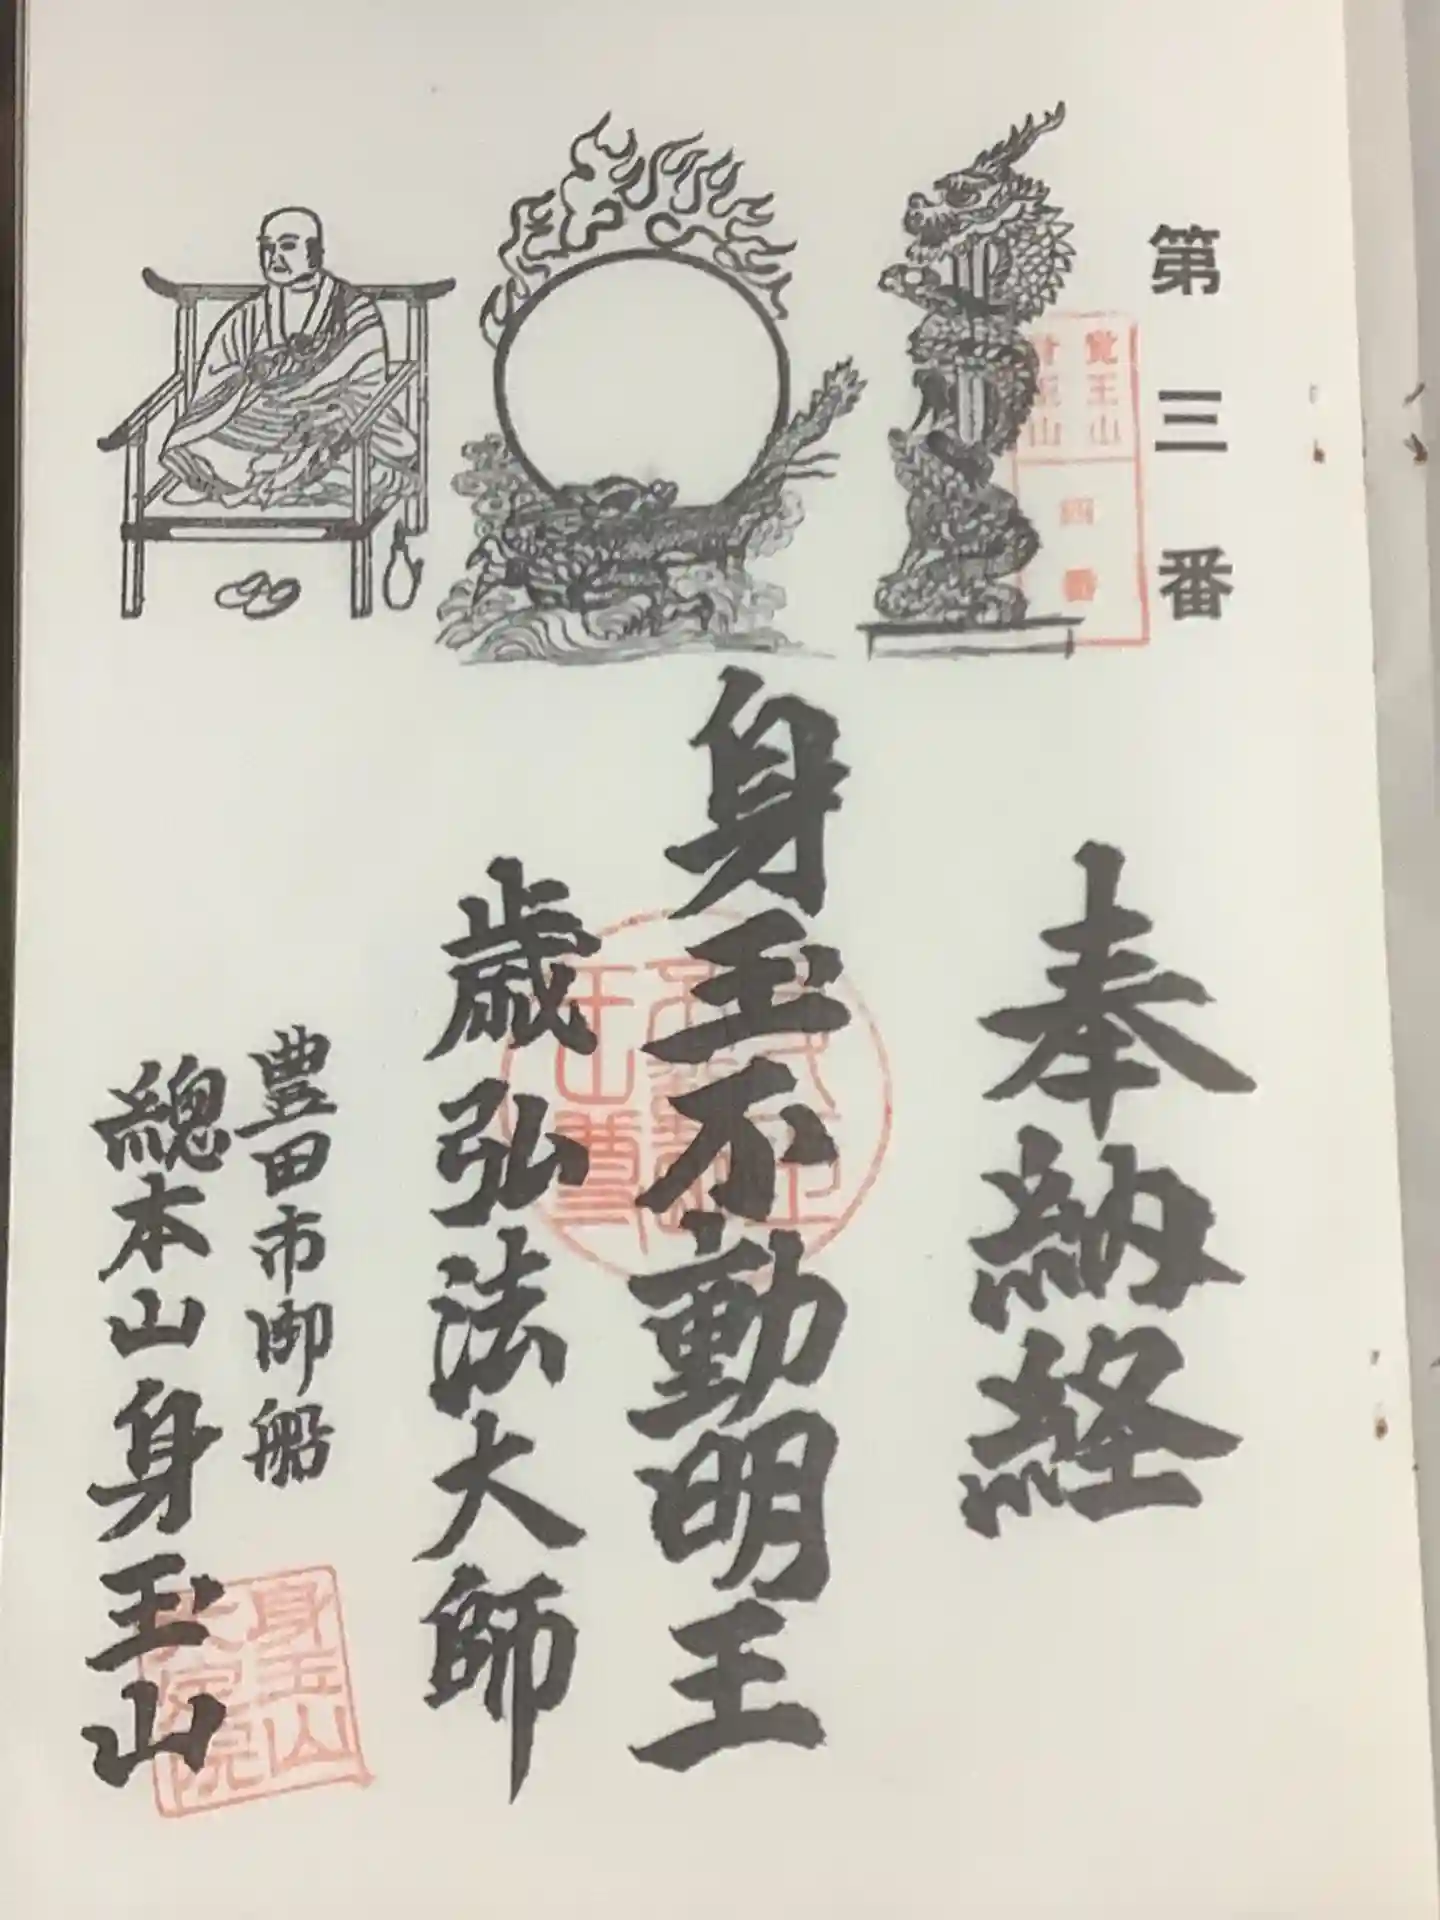 第三番
覚王山
四番
奉納経
身玉不動明王
歳弘法大師
豊田市御船
總本山身玉山
身玉山